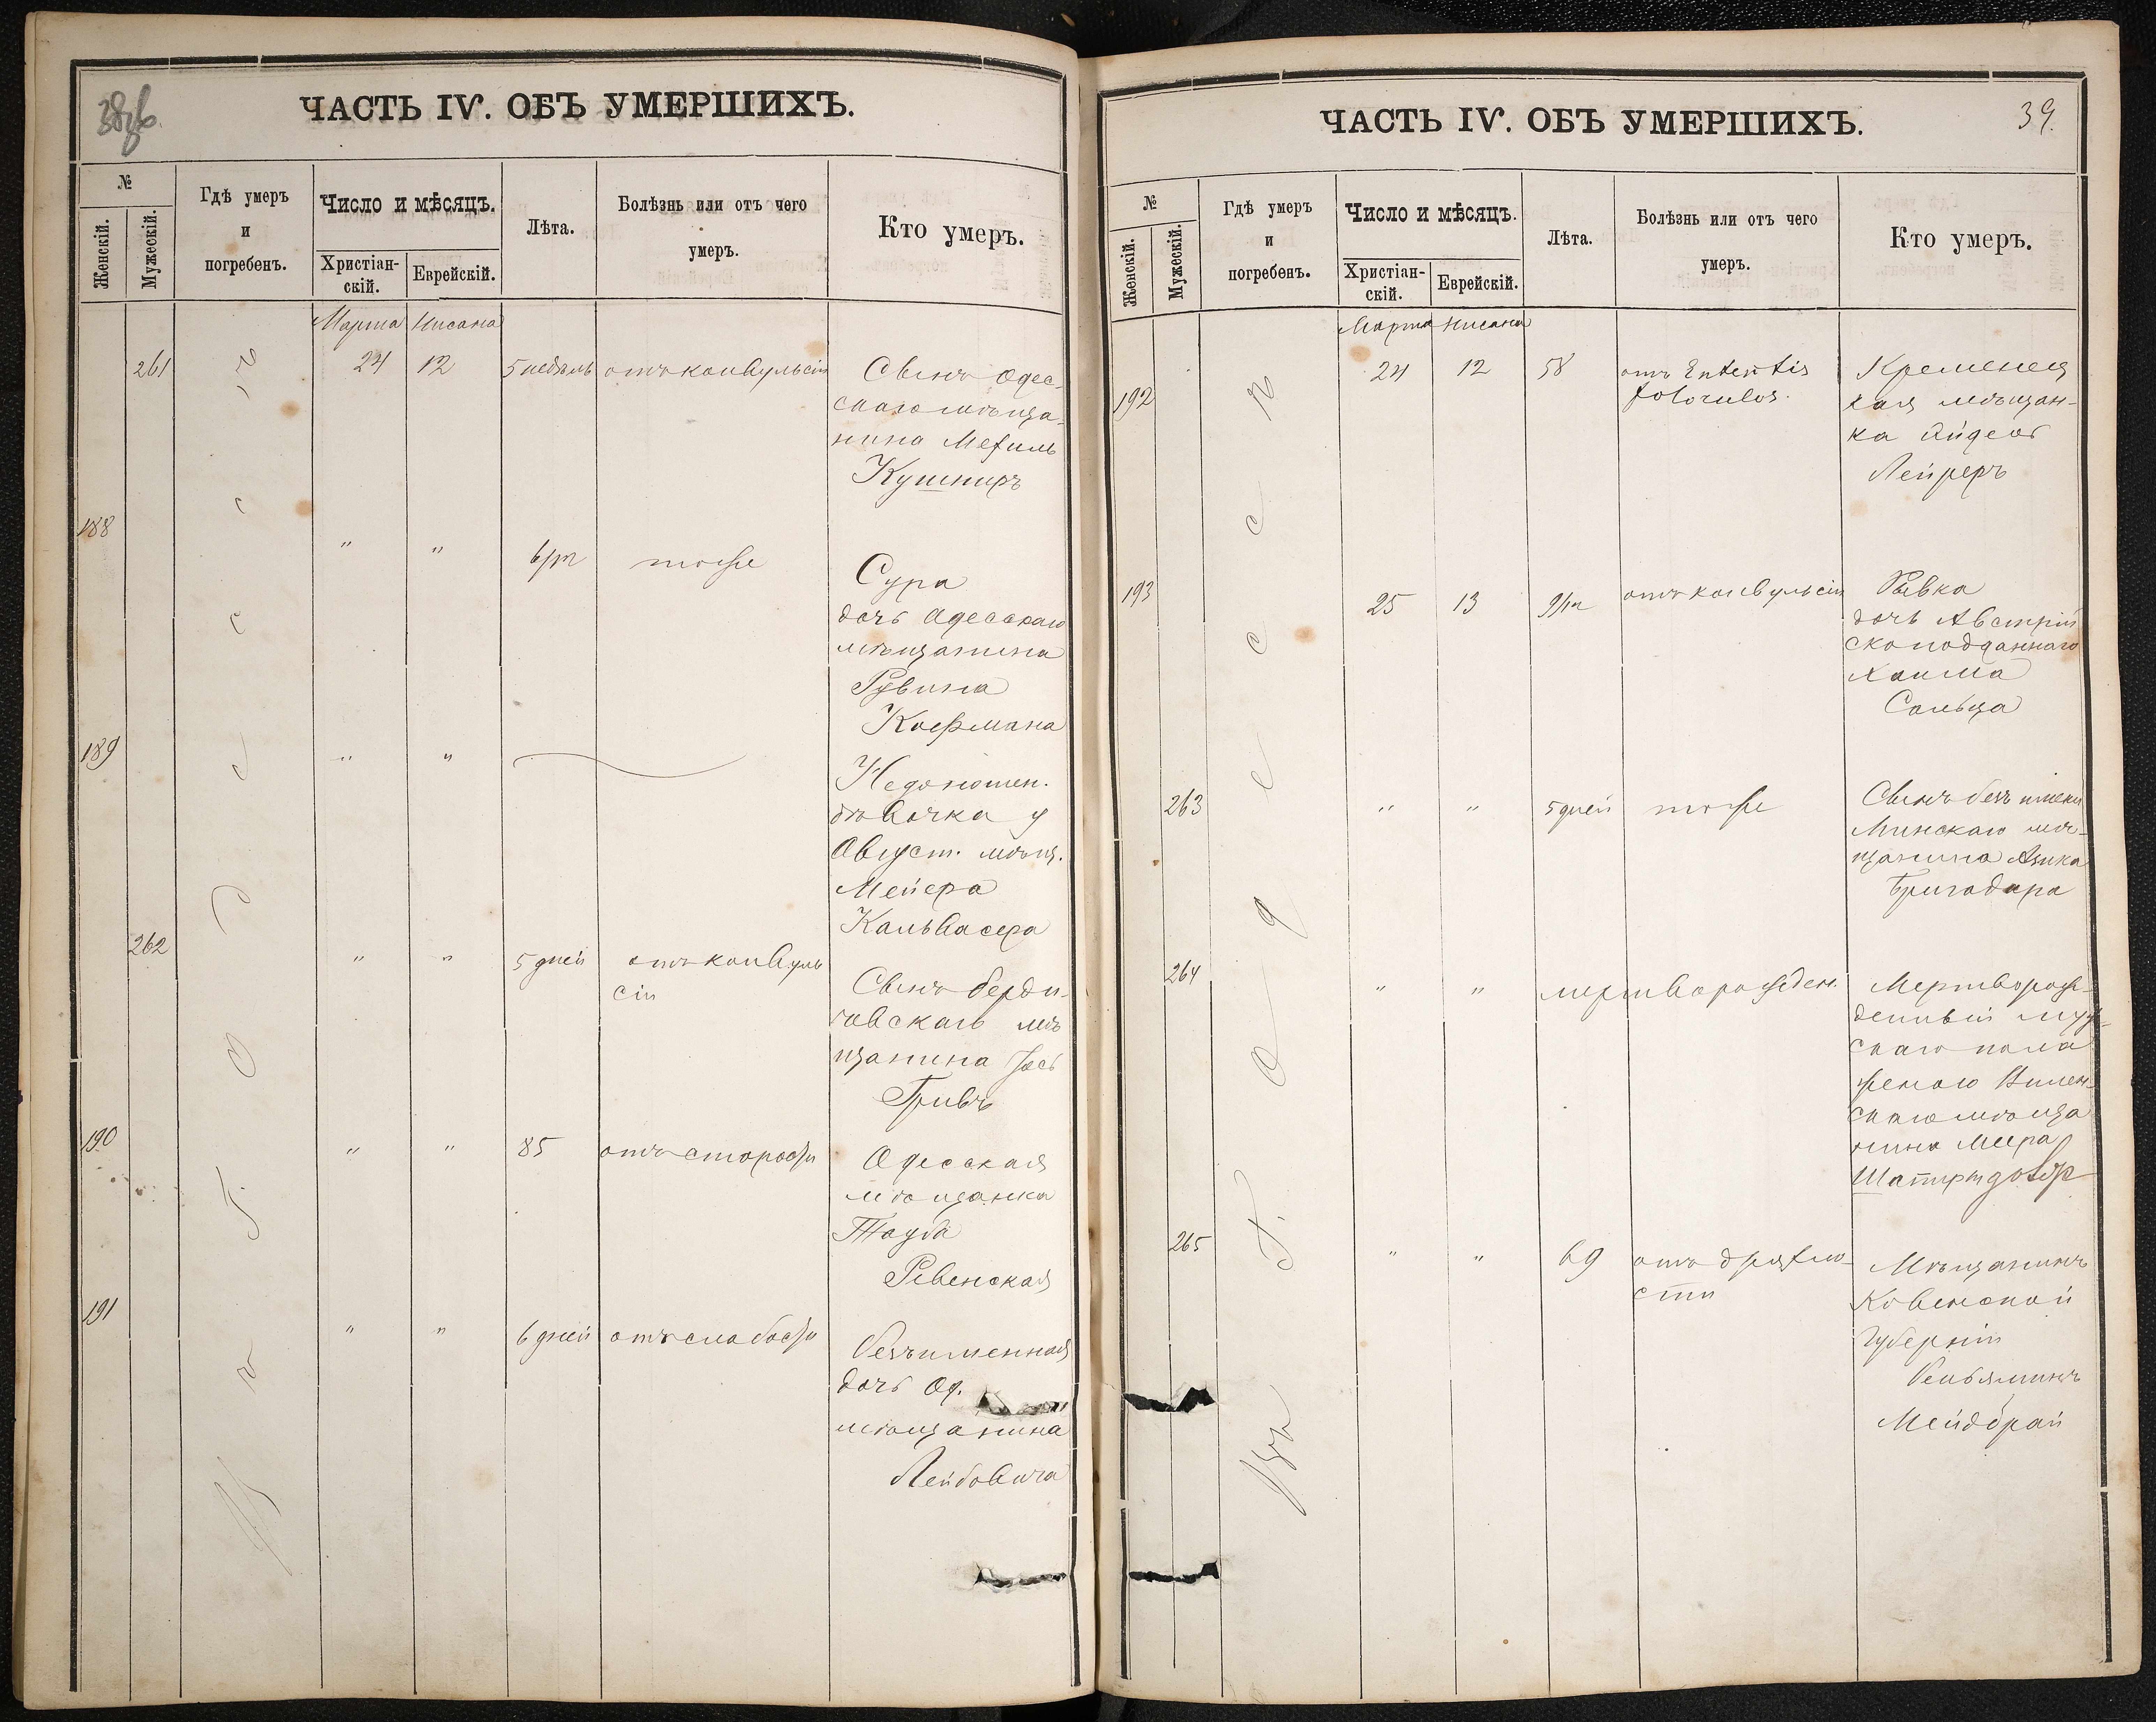 38об.
ЧАСТЬ IV. ОБЪ УМЕРШИХЪ.
№
Женскій.
Мужескій.
Гдѣ умеръ
и
погребенъ.
Число и мѣсяцъ.
Христіан-
скій.
Еврейскій.
Лѣта.
Болѣзнь или отъ чего
умеръ.
Кто умеръ.
Марта Нисана
261 24 12 5 недѣль отъ конвульсіи Сынъ Одес-
скаго мѣща-
нина Мехиль
Кушниръ
188 " " 6/m тоже Сура
дочь Одесскаго
мѣщанина
Рувина
Кофмана
189 " " Недоношен.
дѣвочка у
Август. мѣщ.
Мейера
Кальвасера
262 " " 5 дней отъ конвуль
сіи
Сынъ берди-
чевскаго мѣ
щанина Іось
Гривъ
190 " " 85 отъ старости Одесская
мѣщанка
Тауба
Ревенская
191 " " 6 дней отъ слабости безъименная
дочь Од.
мѣщанина
Лейбовича
въ г. Одессѣ
39.
ЧАСТЬ IV. ОБЪ УМЕРШИХЪ.
№
Женскій.
Мужескій.
Гдѣ умеръ
и
погребенъ.
Число и мѣсяцъ.
Христіан-
скій.
Еврейскій.
Лѣта.
Болѣзнь или отъ чего
умеръ.
Кто умеръ.
Марта Нисана
192 24 12 58 отъ Кременец
кая мѣщан-
ка Айдель
Лейреръ
193 25 13 9/m отъ конвульсіи Ривка
дочь Австрій
скоподданнаго
Хаима
Сальца
263 " " 5 дней тоже Сынъ безъ имени
Минскаго мѣ-
щанина Азика
Бригадира
264 " " мертворожден. Мертворож-
денный муж-
скаго пола
женою Вилен-
скаго мѣща
нина Меера
265 " " 69 отъ дряхло-
сти
Мѣщанинъ
Ковенской
Губерніи
Веньяминъ
Мейдбрай
въ г. Одессѣ